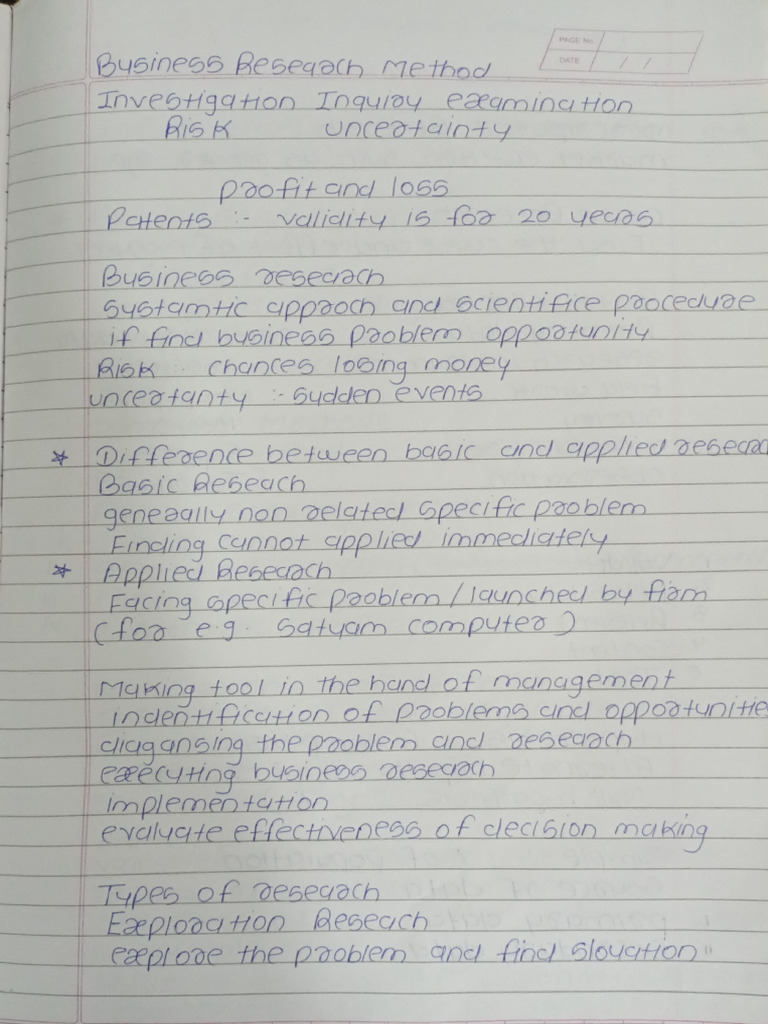 PAGE No.
DATE / /
Business Research Method
Investigation Inquiry examination
Risk uncertainty
profit and loss
Patents :- validity is for 20 years
Business research
systamtic approch and scientifice procedure
if find business problem opportunity
Risk :- chances losing money
uncertanty :- sudden events
* Difference between basic and applied resear
Basic Reseach
generally non related specific problem
Finding cannot applied immediately
* Applied Research
Facing specific problem / launched by firm
(for e.g. satyam computer)
Making tool in the hand of management
indentification of problems and opportunitie
diagansing the problem and research
executing business research
implementation
evaluate effectiveness of decision making
Types of research
Exploration Reseach
explore the problem and find slouation "